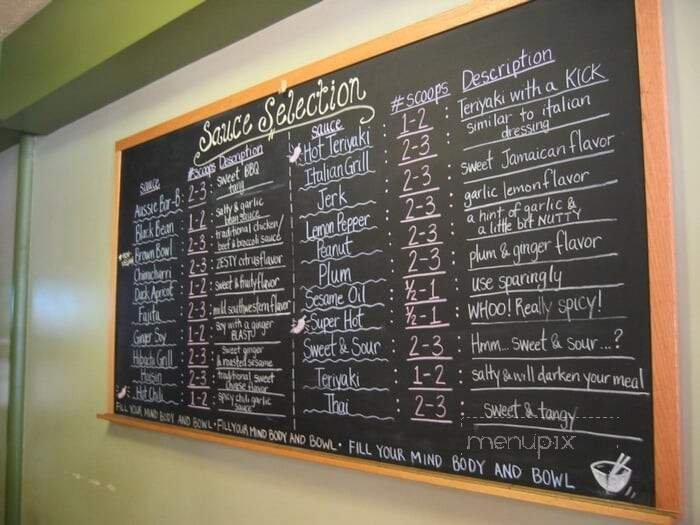 Sauce Selection
sauce #scoops Description
Aussie Bar-B 2-3 sweet BBQ
tang
Black Bean 1-2 salty & garlic
bean sauce
Brown Bowl 2-3 traditional chicken/
beef & broccoli sauce
Chimichurri 2-3 ZESTY citrus flavor
Duck Apricot 1-2 sweet & fruity flavor
Fajita 2-3 mild southwestern flavor
Ginger Soy 1-2 Soy with a ginger
BLAST!
Hibachi Grill 2-3 Sweet ginger
& roasted sesame
Hoisin 2-3 traditional sweet
Chinese flavor
Hot Chili 1-2 spicy chili garlic
sauce
sauce # scoops Description
Hot Teriyaki 1-2 Teriyaki with a KICK
Italian Grill 2-3 similar to italian
dressing
Jerk 2-3 sweet Jamaican flavor
Lemon Pepper 2-3 garlic lemon flavor
Peanut 2-3 a hint of garlic &
a little bit NUTTY
Plum 2-3 plum & ginger flavor
Sesame Oil ½-1 use sparingly
Super Hot ½-1 WHOO! Really spicy!
Sweet & Sour 2-3 Hmm... sweet & sour...?
Teriyaki 1-2 salty & will darken your meal
Thai 2-3 sweet & tangy
FILL YOUR MIND BODY AND BOWL • FILL YOUR MIND BODY AND BOWL • FILL YOUR MIND BODY AND BOWL
menupix